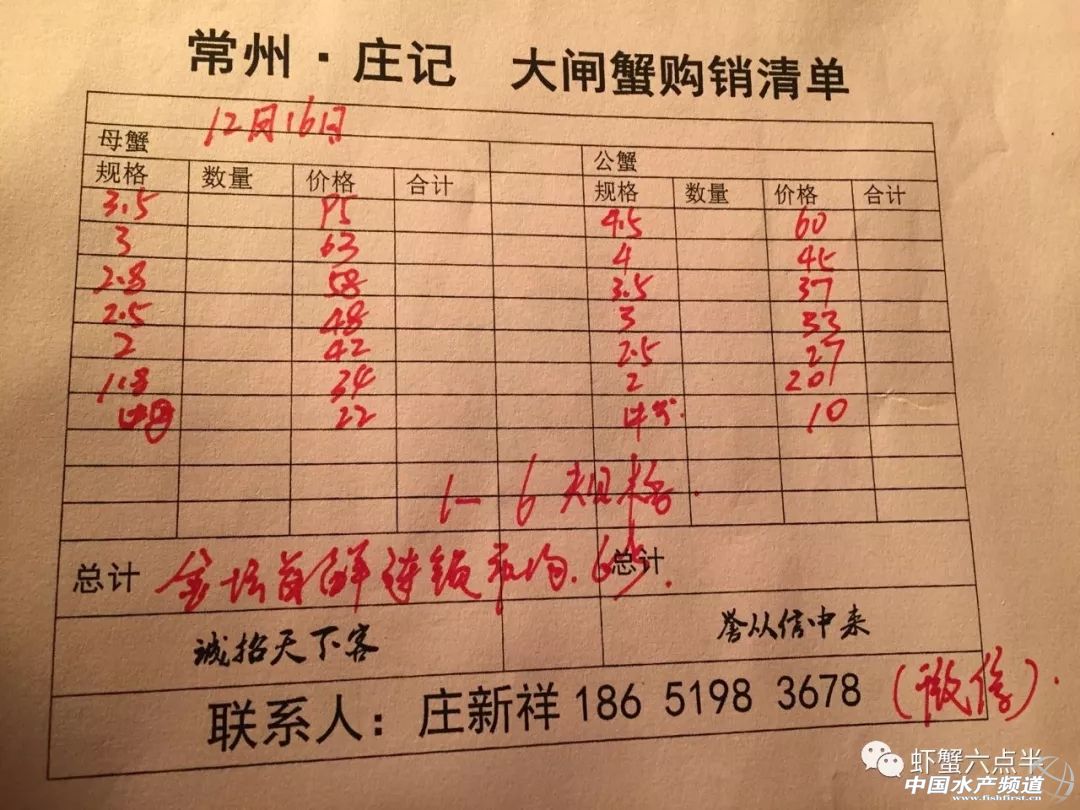 常州·庄记 大闸蟹购销清单
12月16日
母蟹 公蟹
规格 数量 价格 合计 规格 数量 价格 合计
3.5 95 4.5 60
3 63 4 45
2.8 58 3.5 37
2.5 48 3 33
2 42 2.5 27
1.8 34 2 20
小母 22 小公 10
1-6规格.
总计 金坛首鲜连锁平均. 总计
诚招天下客 誉从信中来
联系人：庄新祥 186 5198 3678 (微信).
虾蟹六点半
中国水产频道
www.fishfirst.cn